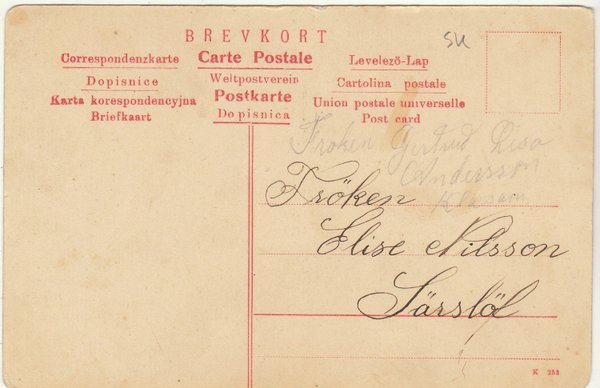 BREVKORT
SK
Correspondenzkarte Carte Postale Levelezö-Lap
Dopisnice Weltpostverein Cartolina postale
Karta korespondencyjna Postkarte Union postale universelle
Briefkaart Dopisnica Post card
Fröken Gertrud
Andersson
Fröken
Elise Nilsson
Särslöf
K 253